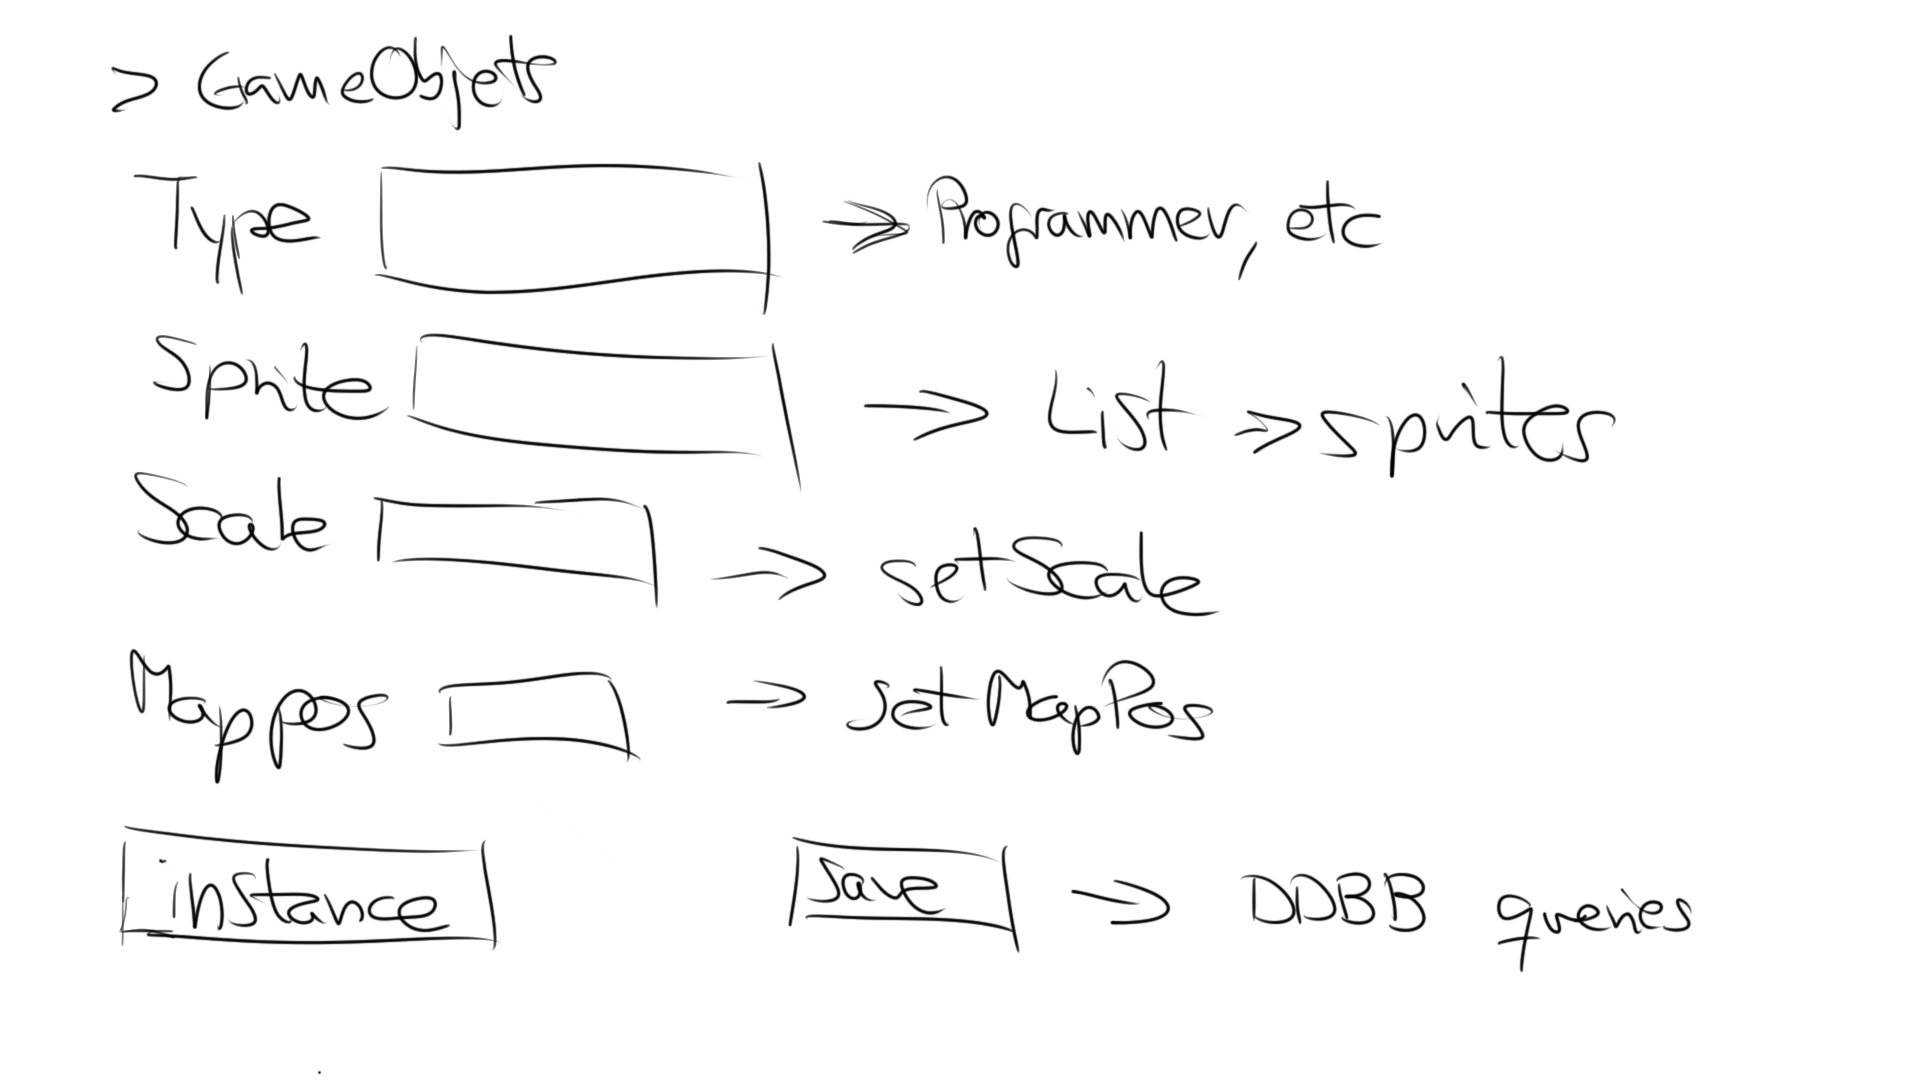 > GameObjets
Type → Programmer, etc
Sprite → List → sprites
Scale → setScale
Map pos → setMapPos
instance save → DDBB queries